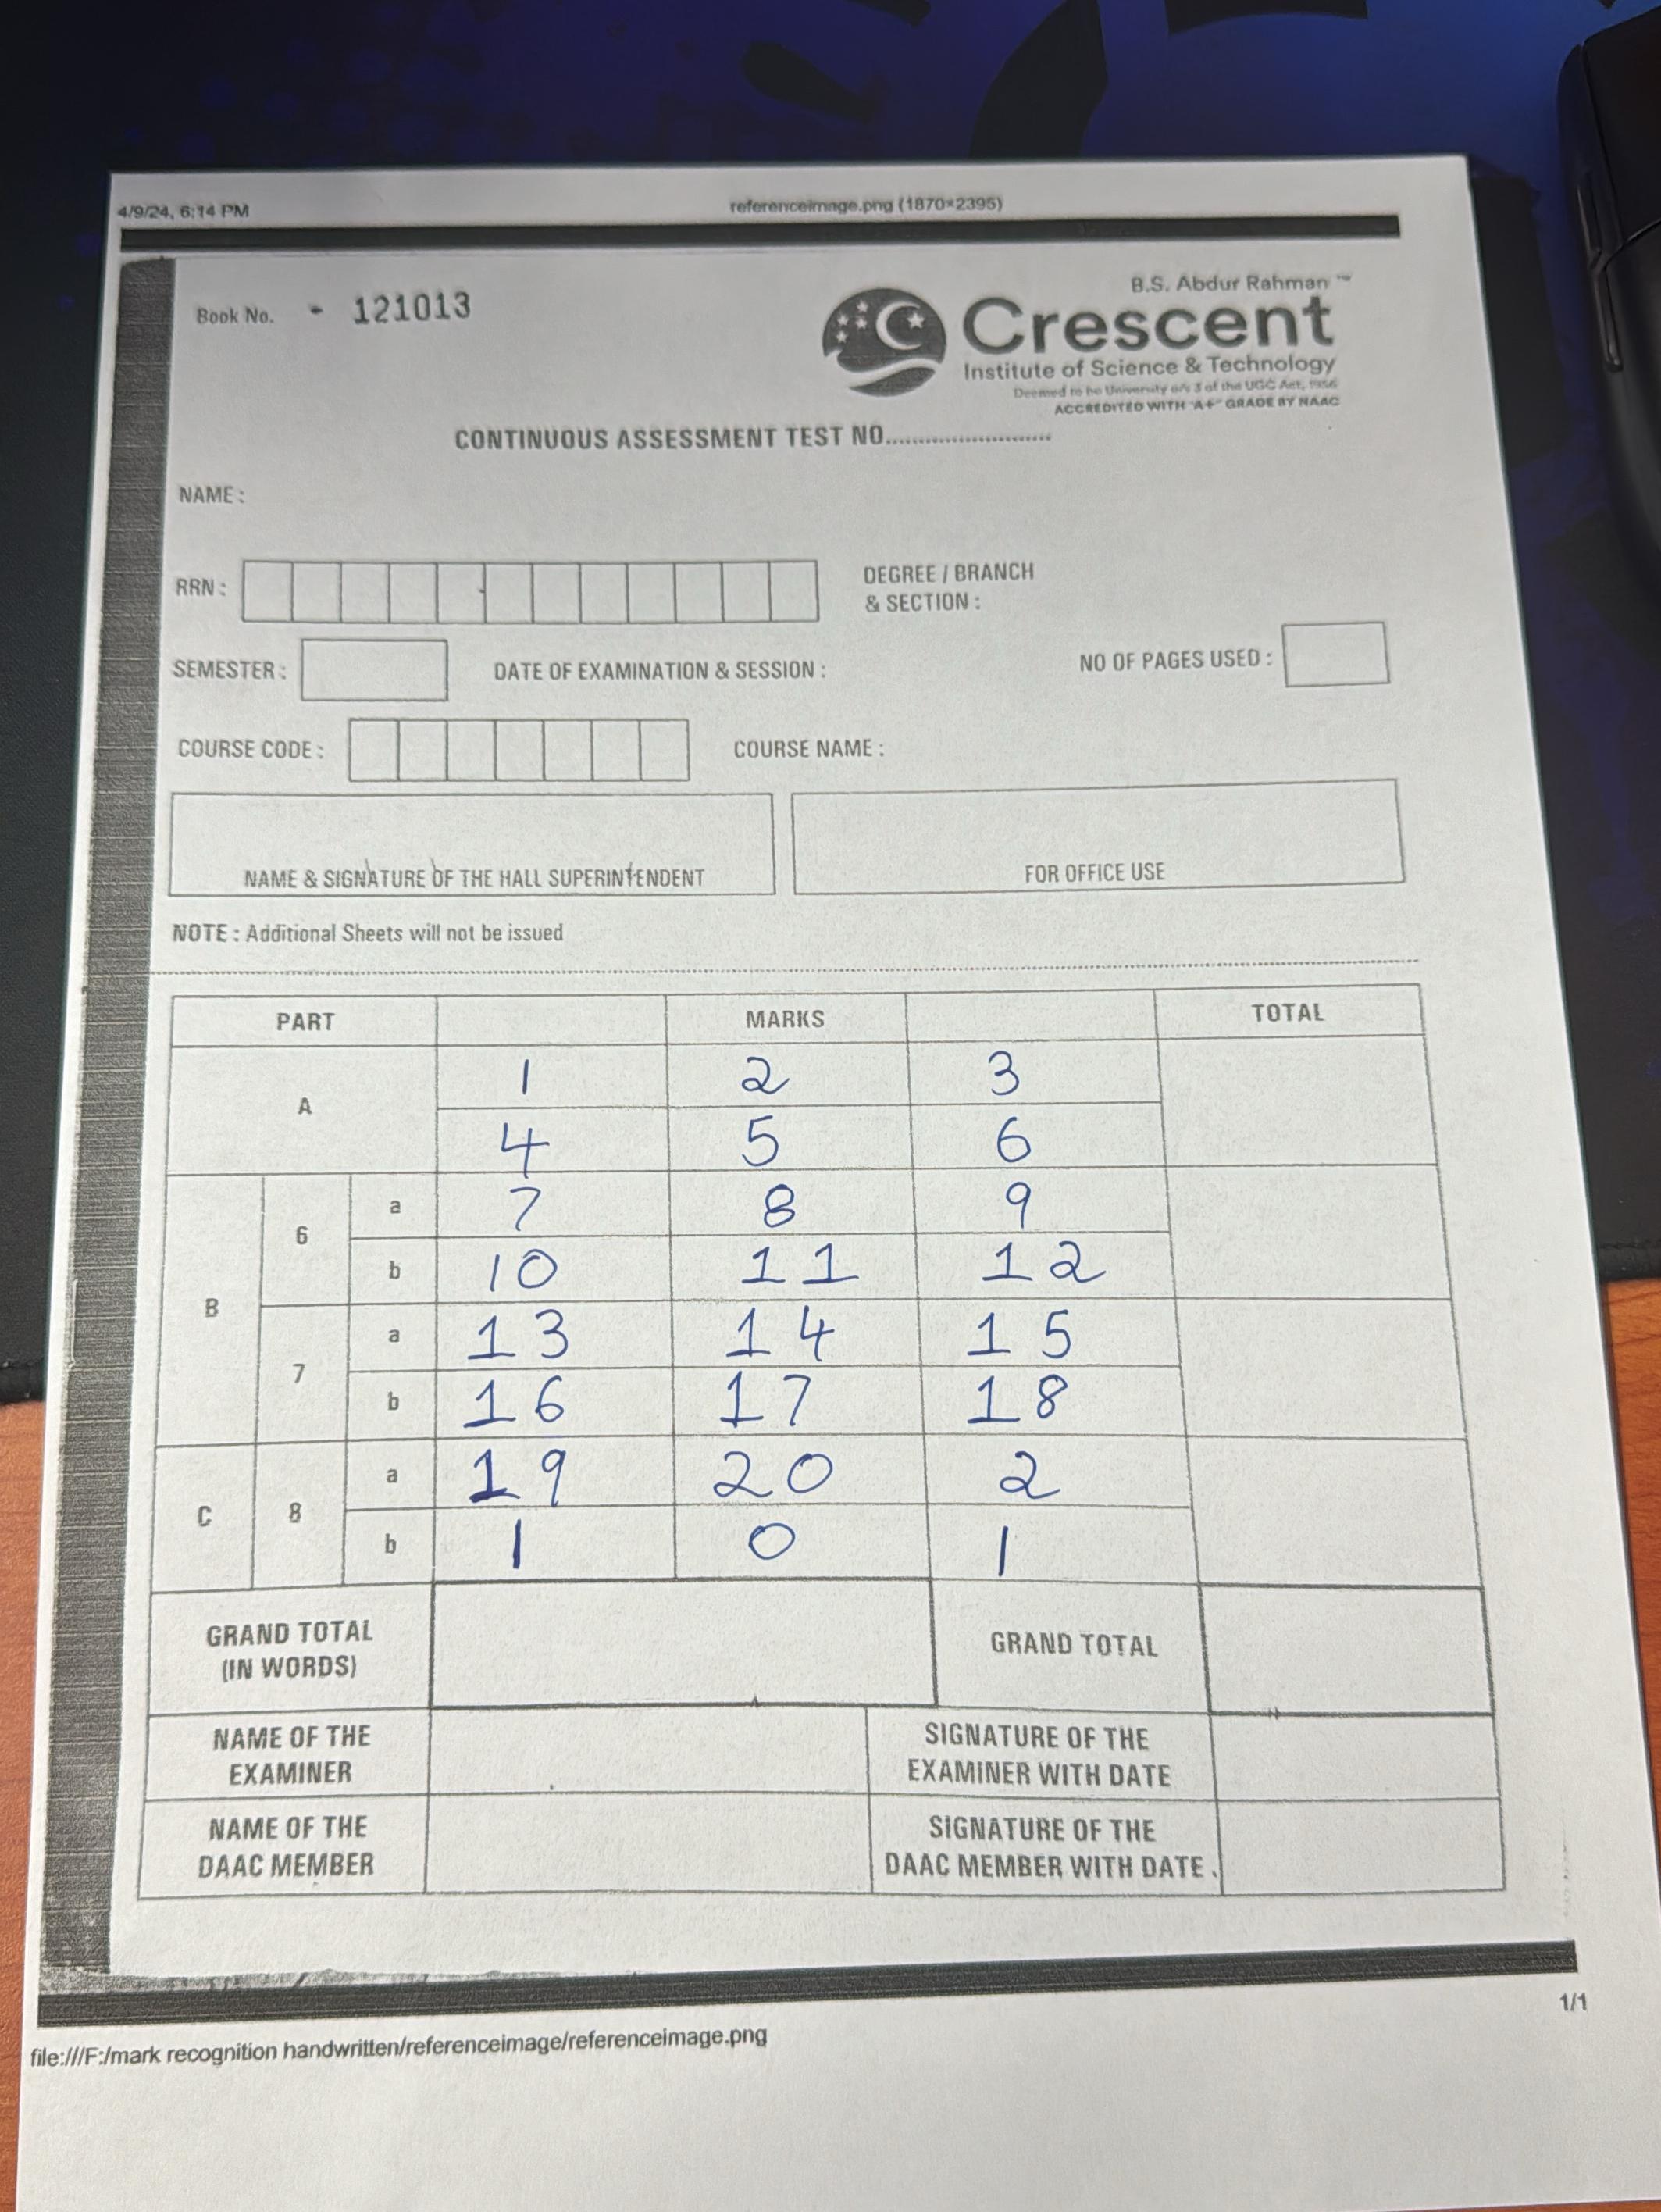 4/9/24, 6:14 PM referenceimage.png (1870×2395)
Book No. - 121013
B.S. Abdur Rahman ™
Crescent
Institute of Science & Technology
Deemed to be University u/s 3 of the UGC Act, 1956
ACCREDITED WITH "A+" GRADE BY NAAC
CONTINUOUS ASSESSMENT TEST NO..........................
NAME :
RRN : DEGREE / BRANCH
& SECTION :
SEMESTER : DATE OF EXAMINATION & SESSION : NO OF PAGES USED :
COURSE CODE : COURSE NAME :
NAME & SIGNATURE OF THE HALL SUPERINTENDENT FOR OFFICE USE
NOTE : Additional Sheets will not be issued
PART MARKS TOTAL
A 1 2 3
4 5 6
B 6 a 7 8 9
b 10 11 12
7 a 13 14 15
b 16 17 18
C 8 a 19 20 2
b 1 0 1
GRAND TOTAL
(IN WORDS) GRAND TOTAL
NAME OF THE
EXAMINER SIGNATURE OF THE
EXAMINER WITH DATE
NAME OF THE
DAAC MEMBER SIGNATURE OF THE
DAAC MEMBER WITH DATE .
1/1
file:///F:/mark recognition handwritten/referenceimage/referenceimage.png